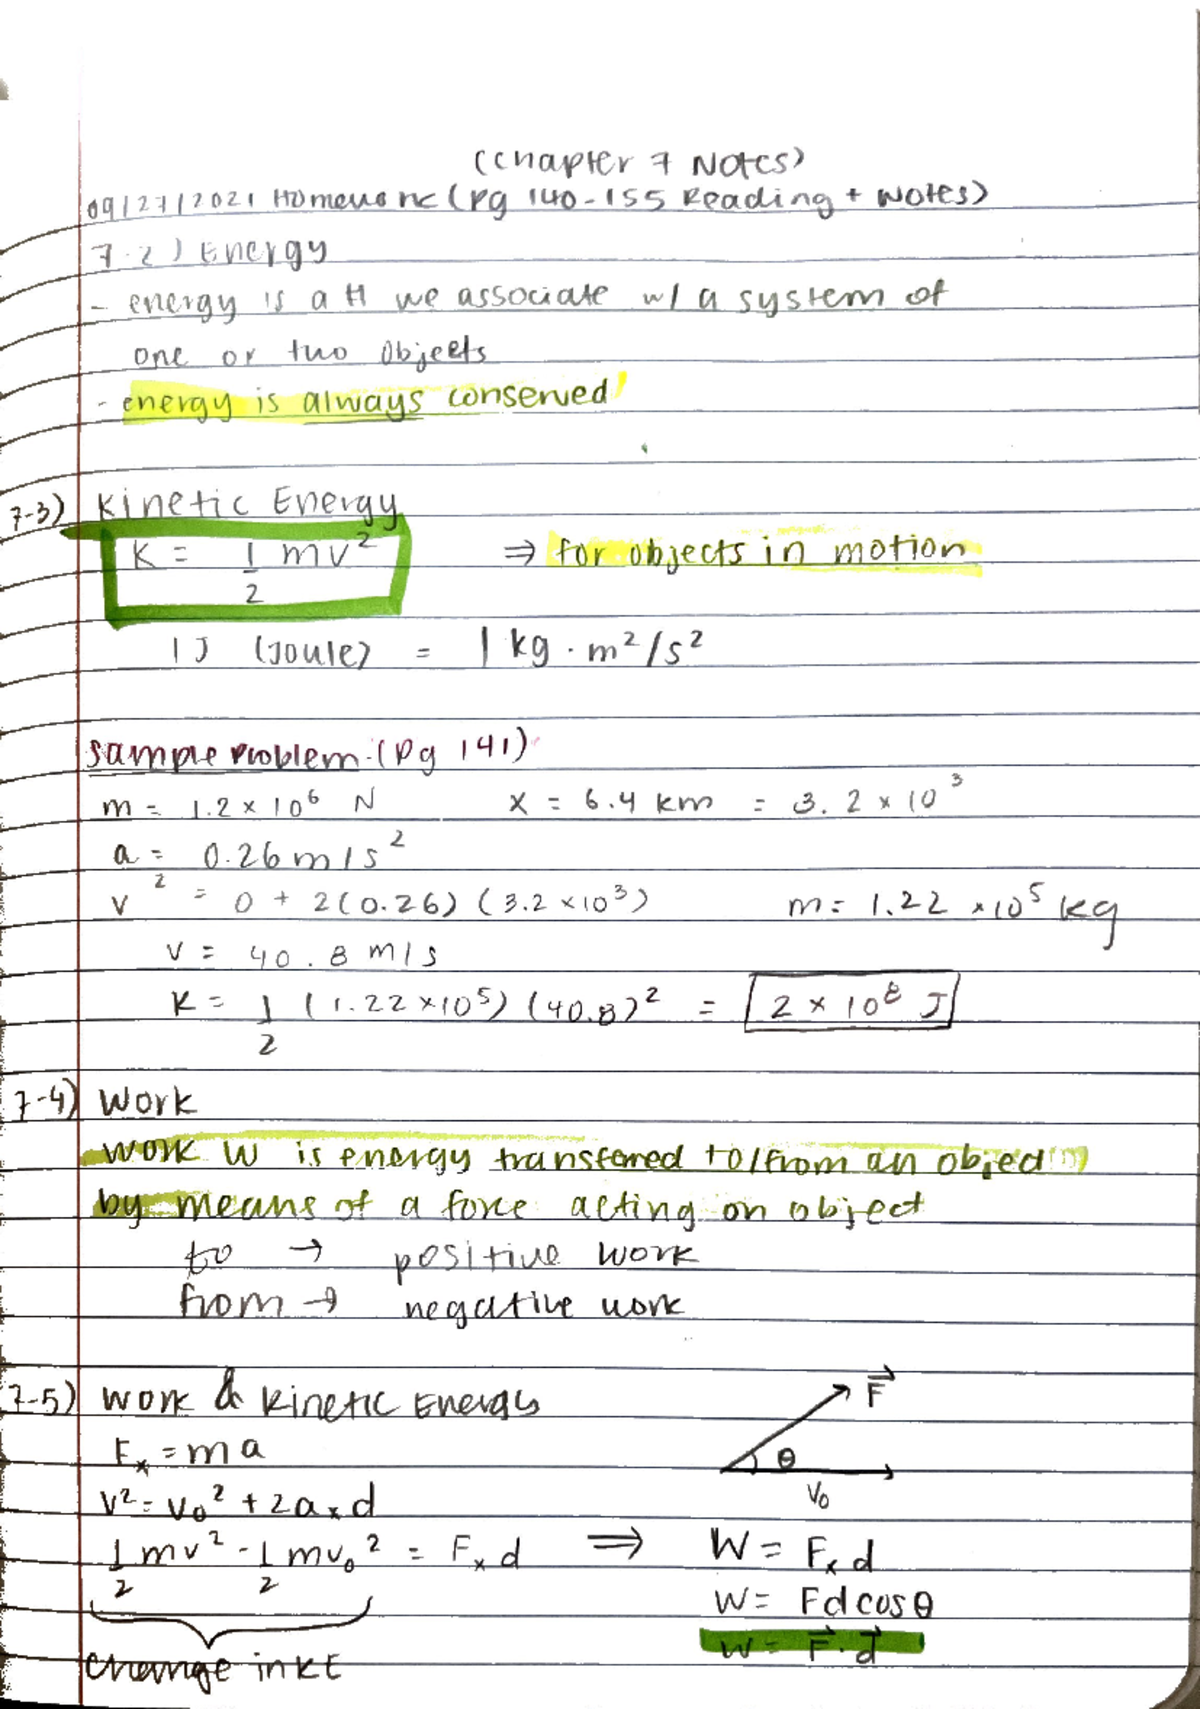 (Chapter 7 Notes)
09/27/2021 Homework (Pg 140-155 Reading + Notes)
7.2) Energy
- energy is a # we associate w/ a system of
one or two objects
- energy is always conserved
7-3) Kinetic Energy
K = 1/2 mv² ⇒ for objects in motion
1 J (Joule) = 1 kg · m²/s²
Sample Problem (Pg 141)
m = 1.2 × 10⁶ N x = 6.4 km = 3.2 × 10³
a = 0.26 m/s²
v² = 0 + 2(0.26)(3.2 × 10³) m = 1.22 × 10⁵ kg
v = 40.8 m/s
K = 1/2 (1.22 × 10⁵)(40.8)² = 2 × 10⁸ J
7-4) Work
Work W is energy transferred to/from an object
by means of a force acting on object
to → positive work
from → negative work
7-5) Work & Kinetic Energy
F⃗
θ
Fₓ = ma
V₀
v² = v₀² + 2aₓd
1/2 mv² - 1/2 mv₀² = Fₓd ⇒ W = Fₓd
W = Fd cos θ
W = F⃗ · d⃗
change in KE